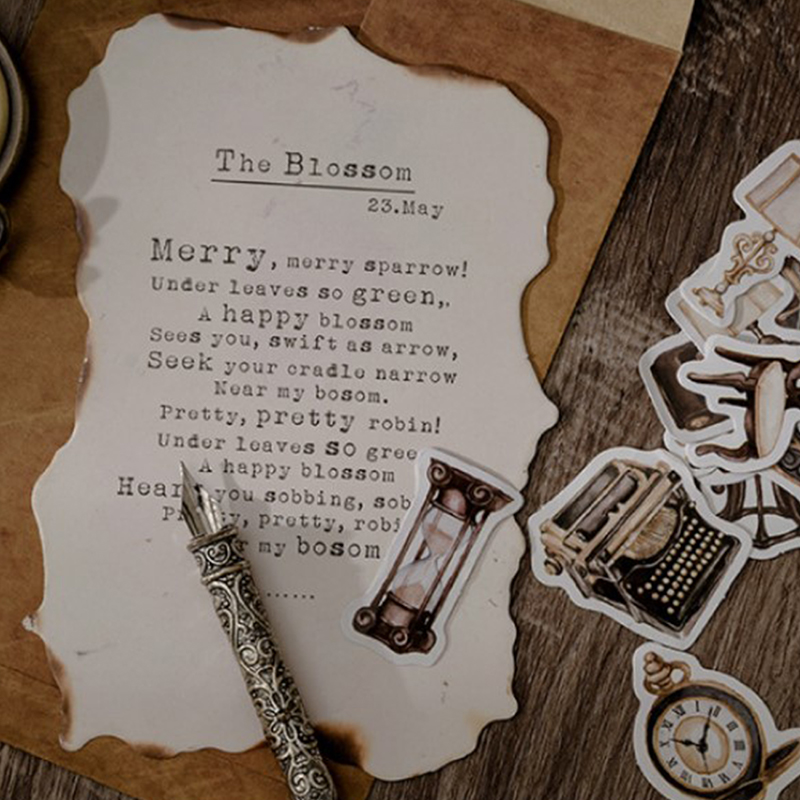 The Blossom
23.May
Merry, merry sparrow!
Under leaves so green,,
A happy blossom
Sees you, swift as arrow,
Seek your cradle narrow
Near my bosom.
Pretty, pretty robin!
Under leaves so
A happy blossom
you sobbing,
pretty,
my bosom
......